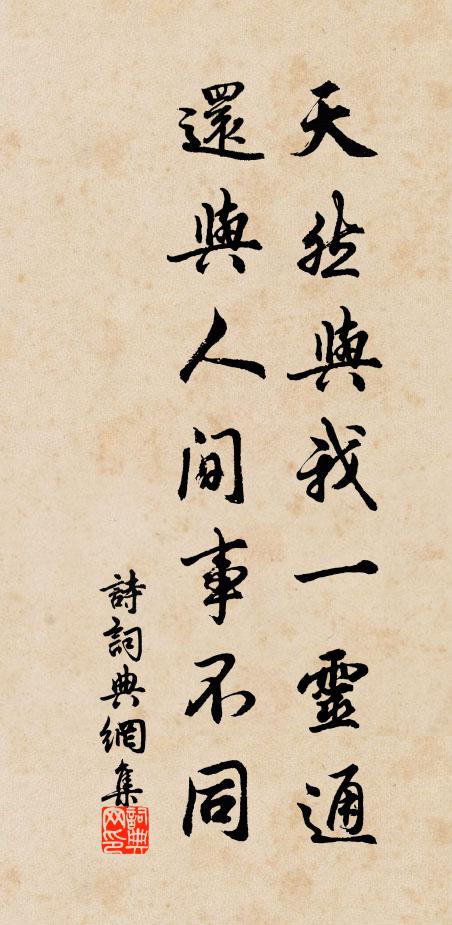 天然與我一靈通
還與人間事不同
詩詞典網集
詞典網印